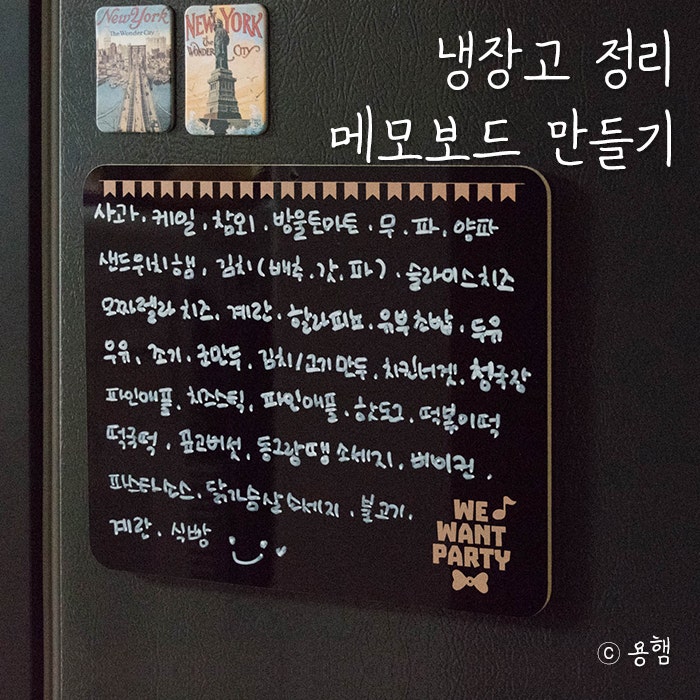 NewYork
The Wonder City
NEW YORK
The
WONDER CITY
냉장고 정리
메모보드 만들기
사과. 케일. 참외. 방울토마토. 무. 파. 양파
샌드위치햄. 김치(배추, 갓, 파). 슬라이스치즈
모짜렐라 치즈. 계란. 할라피뇨. 유부초밥. 두유
우유. 조기. 군만두. 김치/고기만두. 치킨너겟. 청국장
파인애플. 치즈스틱. 파인애플. 핫도그. 떡볶이떡
떡국떡. 표고버섯. 동그랑땡 소세지. 베이컨.
파스타소스. 닭가슴살 소세지. 불고기.
계란. 식빵
WE
WANT
PARTY
ⓒ 용햄